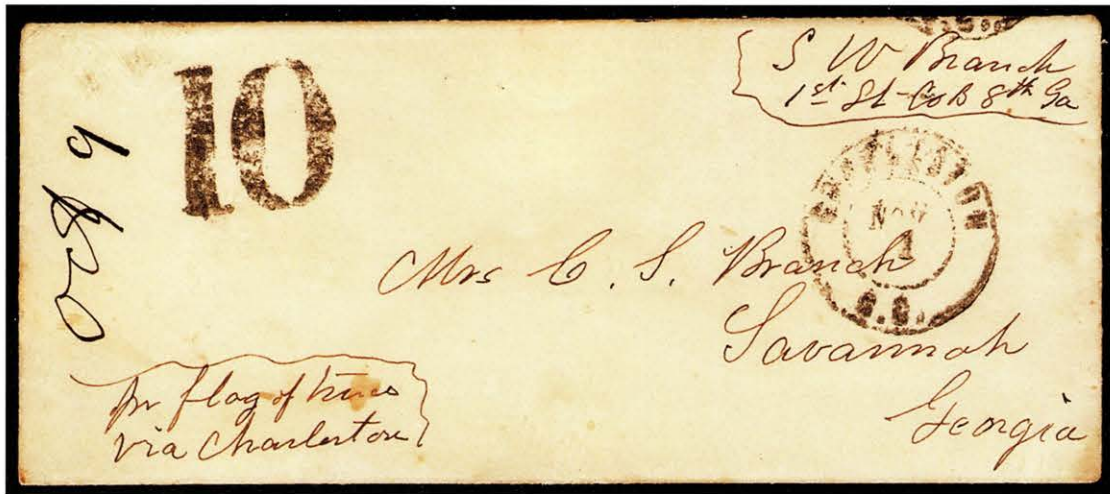 S W Branch
1st Lt Co B 8th Ga
10
Oct 9
CHARLESTON
NOV
1
S.C.
Mrs C. S. Branch
Savannah
Georgia
pr flag of truce
via Charleston